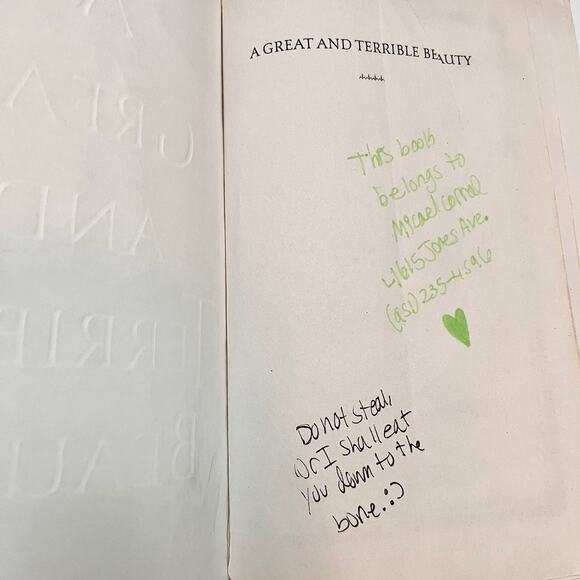 A GREAT AND TERRIBLE BEAUTY
This book
belongs to
Micael Corral
4615 Jones Ave.
(951) 235-4596
Do not steal,
or I shall eat
you down to the
bone. :)
A
GREA
AND
TERRIB
BEAU